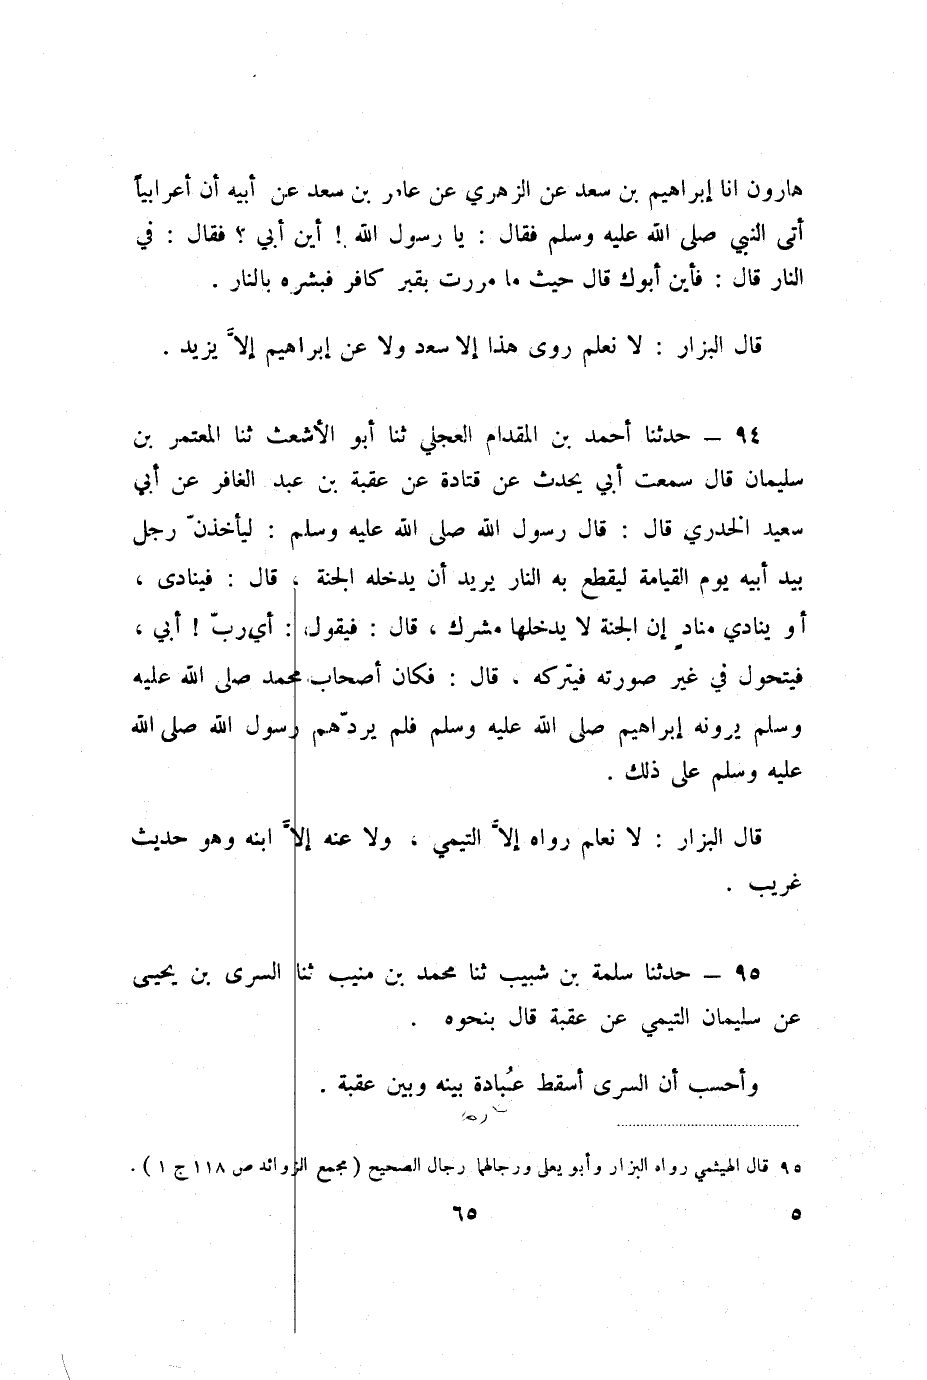 هارون انا إبراهيم بن سعد عن الزهري عن عامر بن سعد عن أبيه أن أعرابياً
أتى النبي صلى الله عليه وسلم فقال : يا رسول الله ! أين أبي ؟ فقال : في
النار قال : فأين أبوك قال حيث ما مررت بقبر كافر فبشره بالنار .
قال البزار : لا نعلم روى هذا إلا سعد ولا عن إبراهيم إلاَّ يزيد .
٩٤ – حدثنا أحمد بن المقدام العجلي ثنا أبو الأشعث ثنا المعتمر بن
سليمان قال سمعت أبي يحدث عن قتادة عن عقبة بن عبد الغافر عن أبي
سعيد الخدري قال : قال رسول الله صلى الله عليه وسلم : ليأخذنّ رجل
بيد أبيه يوم القيامة ليقطع به النار يريد أن يدخله الجنة ، قال : فينادى ،
أو ينادي منادٍ إن الجنة لا يدخلها مشرك ، قال : فيقول : أي ربّ ! أبي ،
فيتحول في غير صورته فيتركه . قال : فكان أصحاب محمد صلى الله عليه
وسلم يرونه إبراهيم صلى الله عليه وسلم فلم يردّهم رسول الله صلى الله
عليه وسلم على ذلك .
قال البزار : لا نعلم رواه إلاَّ التيمي ، ولا عنه إلاَّ ابنه وهو حديث
غريب .
٩٥ – حدثنا سلمة بن شبيب ثنا محمد بن منيب ثنا السرى بن يحيى
عن سليمان التيمي عن عقبة قال بنحوه .
وأحسب أن السرى أسقط عُبادة بينه وبين عقبة .
٩٥ قال الهيثمي رواه البزار وأبو يعلى ورجالهما رجال الصحيح ( مجمع الزوائد ص ١١٨ ج ١ ) .
٥
٦٥